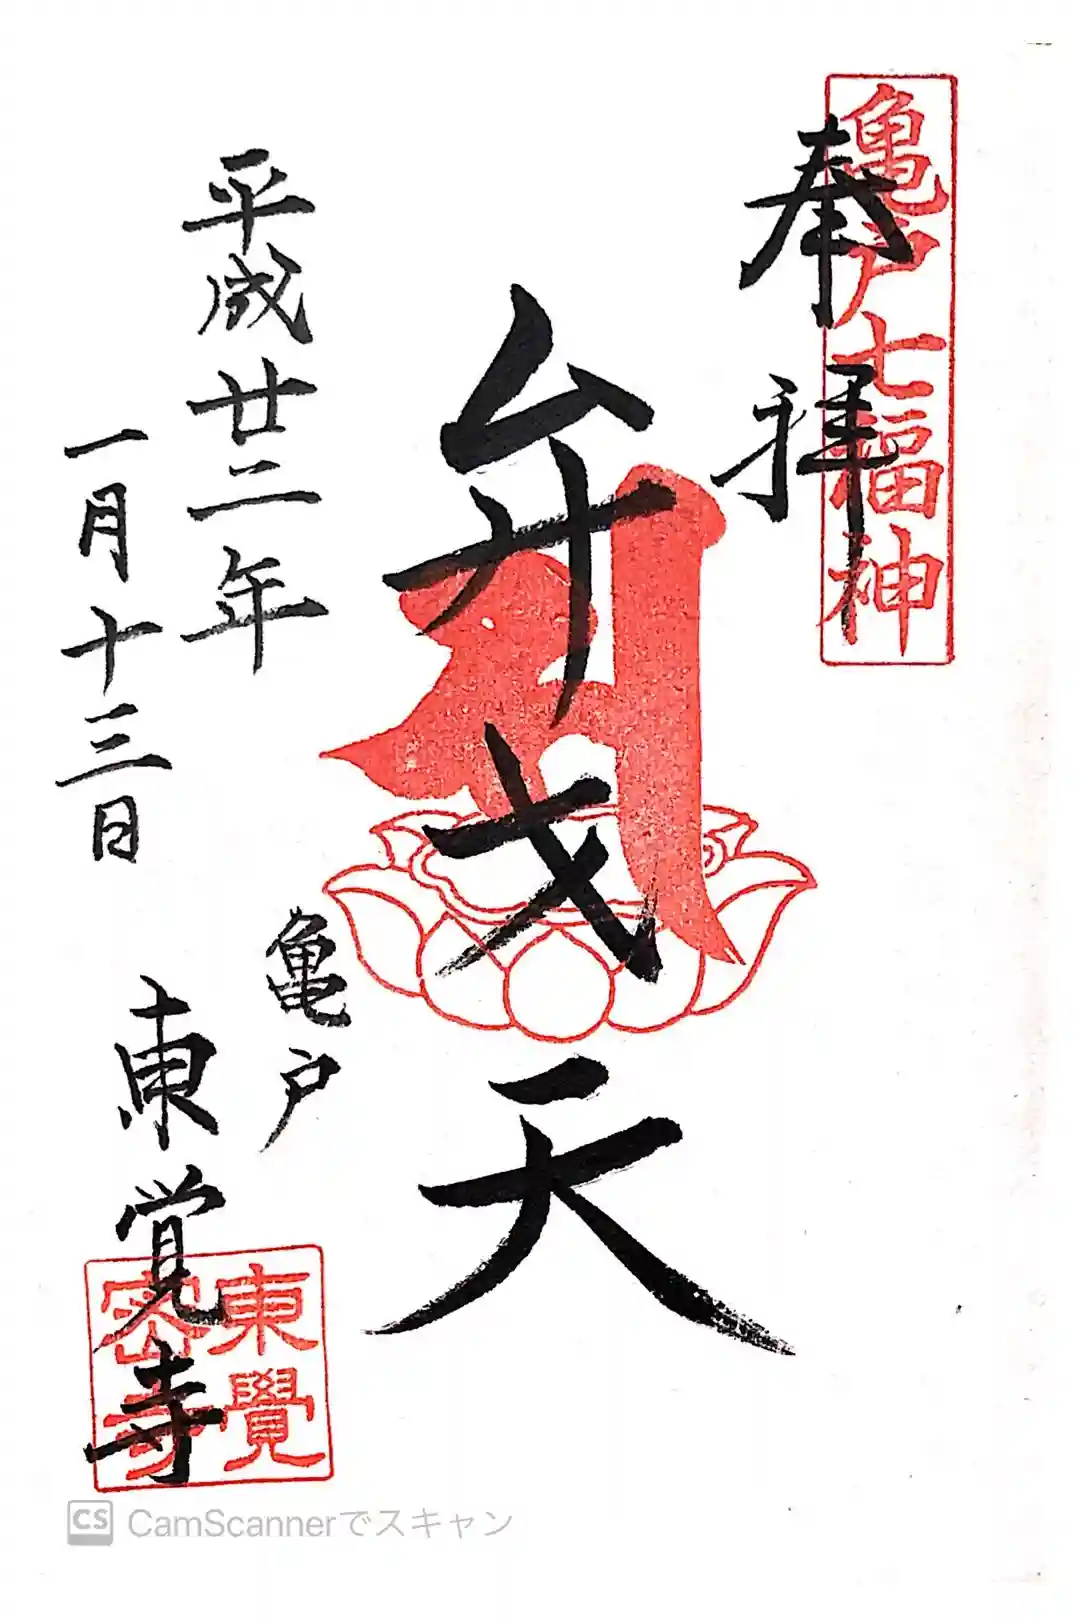 亀戸七福神
奉拝
弁才天
平成廿二年
一月十三日
亀戸
東覚寺
東覺
密寺
CS CamScannerでスキャン